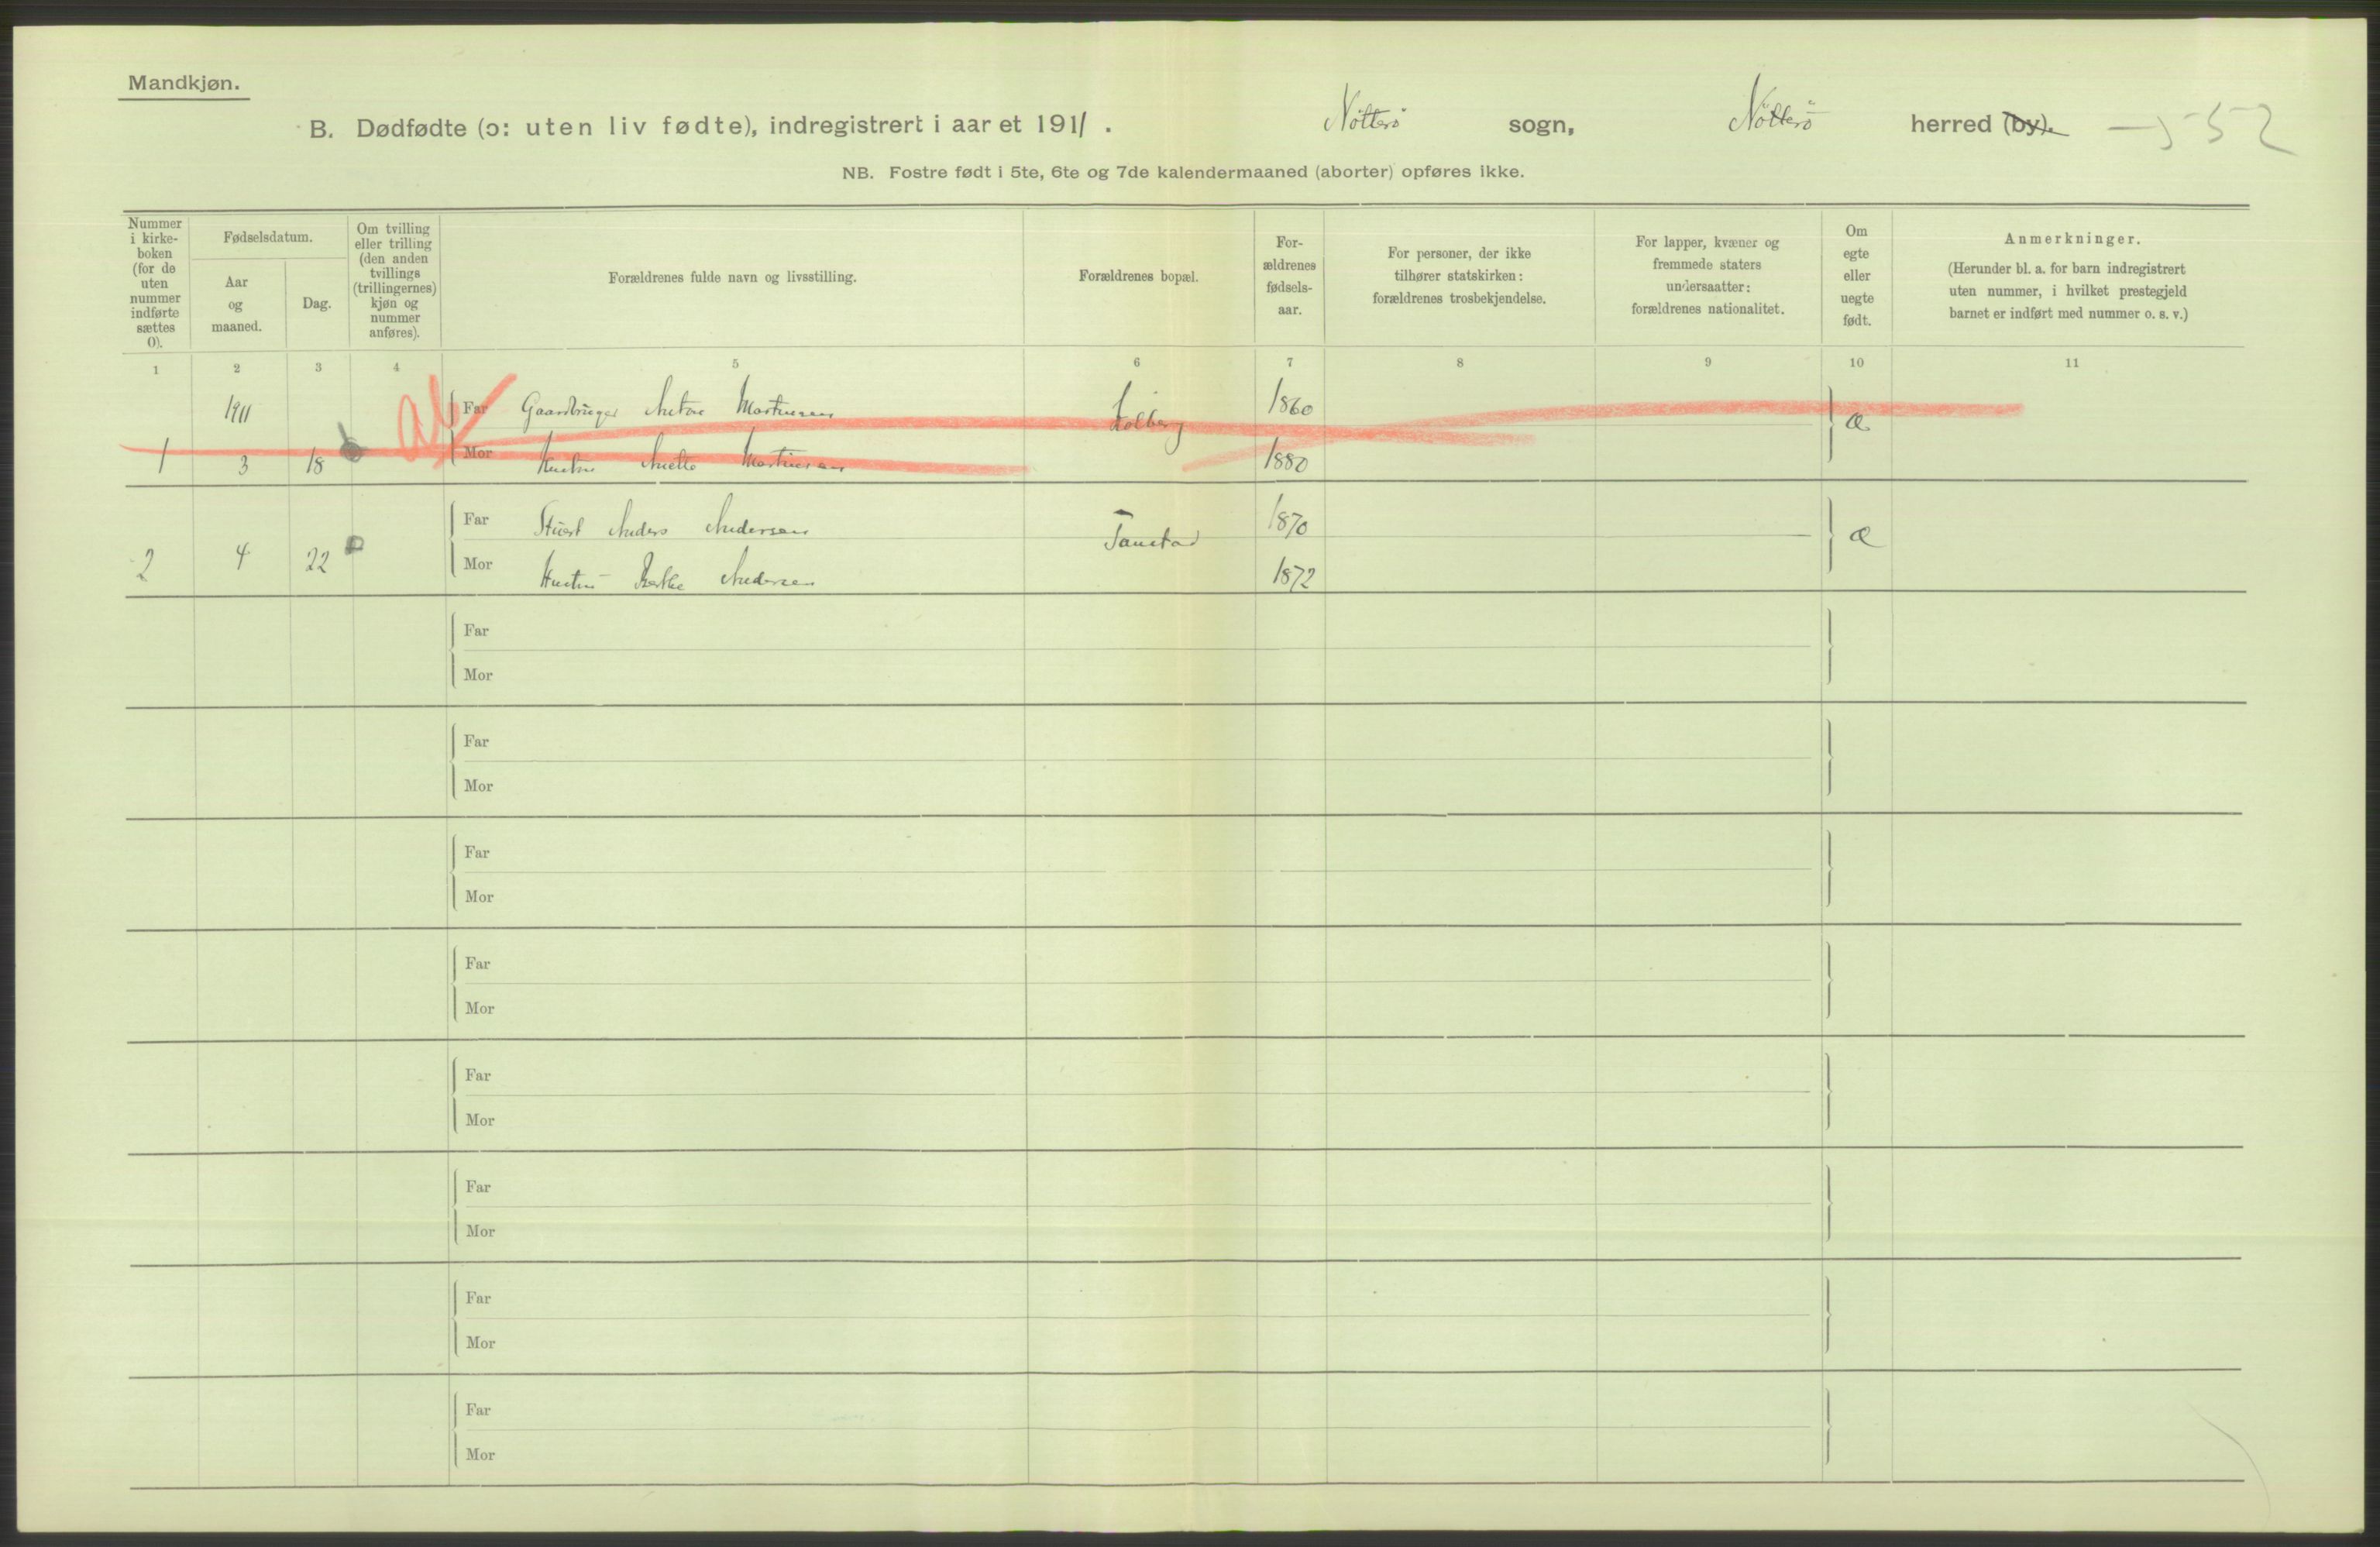 Mandkjøn.
B. Dødfødte (ɔ: uten liv fødte), indregistrert i aaret 1911. Nötterö sogn, Nötterö herred (by). 552
NB. Fostre født i 5te, 6te og 7de kalendermaaned (aborter) opføres ikke.
Nummer i kirke-boken (for de uten nummer indførte sættes 0).
Fødselsdatum.
Aar og maaned.
Dag.
Om tvilling eller trilling (den anden tvillings (trillingernes) kjøn og nummer anføres).
Forældrenes fulde navn og livsstilling.
Forældrenes bopæl.
For-ældrenes fødsels-aar.
For personer, der ikke tilhører statskirken: forældrenes trosbekjendelse.
For lapper, kvæner og fremmede staters undersaatter: forældrenes nationalitet.
Om egte eller uegte født.
Anmerkninger.
(Herunder bl. a. for barn indregistrert uten nummer, i hvilket prestegjeld barnet er indført med nummer o. s. v.)
1 2 3 4 5 6 7 8 9 10 11
1911 Far Gaardbruger Anton Martinsen 1860
1 3 18 Mor Hustru Anette Martinsen 1880 æ
Far Anders Andersen 1870
2 4 22 Mor Hustru Andersen 1872 æ
Far
Mor
Far
Mor
Far
Mor
Far
Mor
Far
Mor
Far
Mor
Far
Mor
Far
Mor